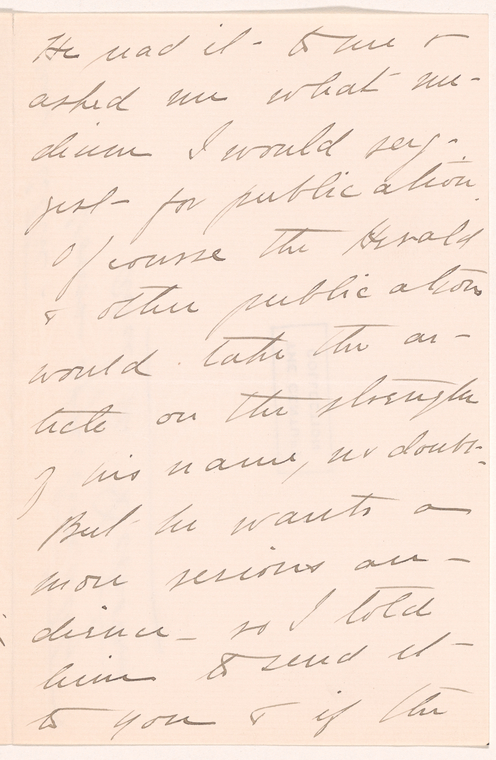 He read it - to me &
asked me what me-
dium I would sug-
gest - for publication.
Of course the Herald
& other publications
would take the ar-
ticle on the strength
of his name, no doubt -
But he wants a
more serious au-
dience - so I told
him to send it -
to you & if the